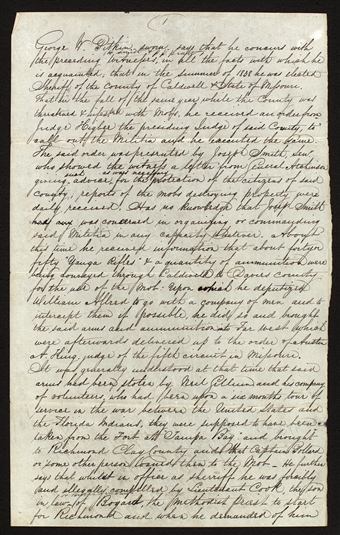 George W Pitkin sworn, says that he concurs with
the preceeding witnesses, in all the facts with which he
is acquainted, that in the summer of 1838 he was elected
Sheriff of the County of Caldwell & State of Missouri.
That in the fall of the same year while the County was
threatened & infested with Mobs, he received an order from
Judge Higbee the presiding Judge of said County, to
call out the Militia and he executed the same.
The said order was presented by Joseph Smith, sen
who showed the witness a letter from General Atchinson
giving such advice as was necessary for the protection of the citizens of said
county, reports of the mobs destroying property were
daily received. Has no knowledge that Joseph Smith
was concerned in organizing or commanding
said Militia in any capacity whatever. About
this time he received information that about forty or
fifty "Yauga Rifles" & a quantity of ammunition were
being conveyed through Caldwell to Davis County
for the use of the Mob. Upon which he deputized
William Allred to go with a company of men and to
intercept them if possible, he did so and brought
the said arms and ammunition to Far West which
were afterwards delivered up to the order of Austin
A King, judge of the fifth circuit in Missouri.
It was generally understood at that time that said
arms had been stolen by Neil Gillium and his company
of volunteers, who had been upon a six months tour of
service in the war between the United States and
the Florida Indians, they were supposed to have been
taken from the Fort at Tampa Bay, and brought
to Richmond Clay County and that Captain Pollard
or some other person loaned them to the Mob. He further
says that whilst in office as sheriff he was forcibly
and illegally compelled by Lieutenant Cook, the son
in law of Bogard, the Methodist Priest to start
for Richmond and when he demanded of him